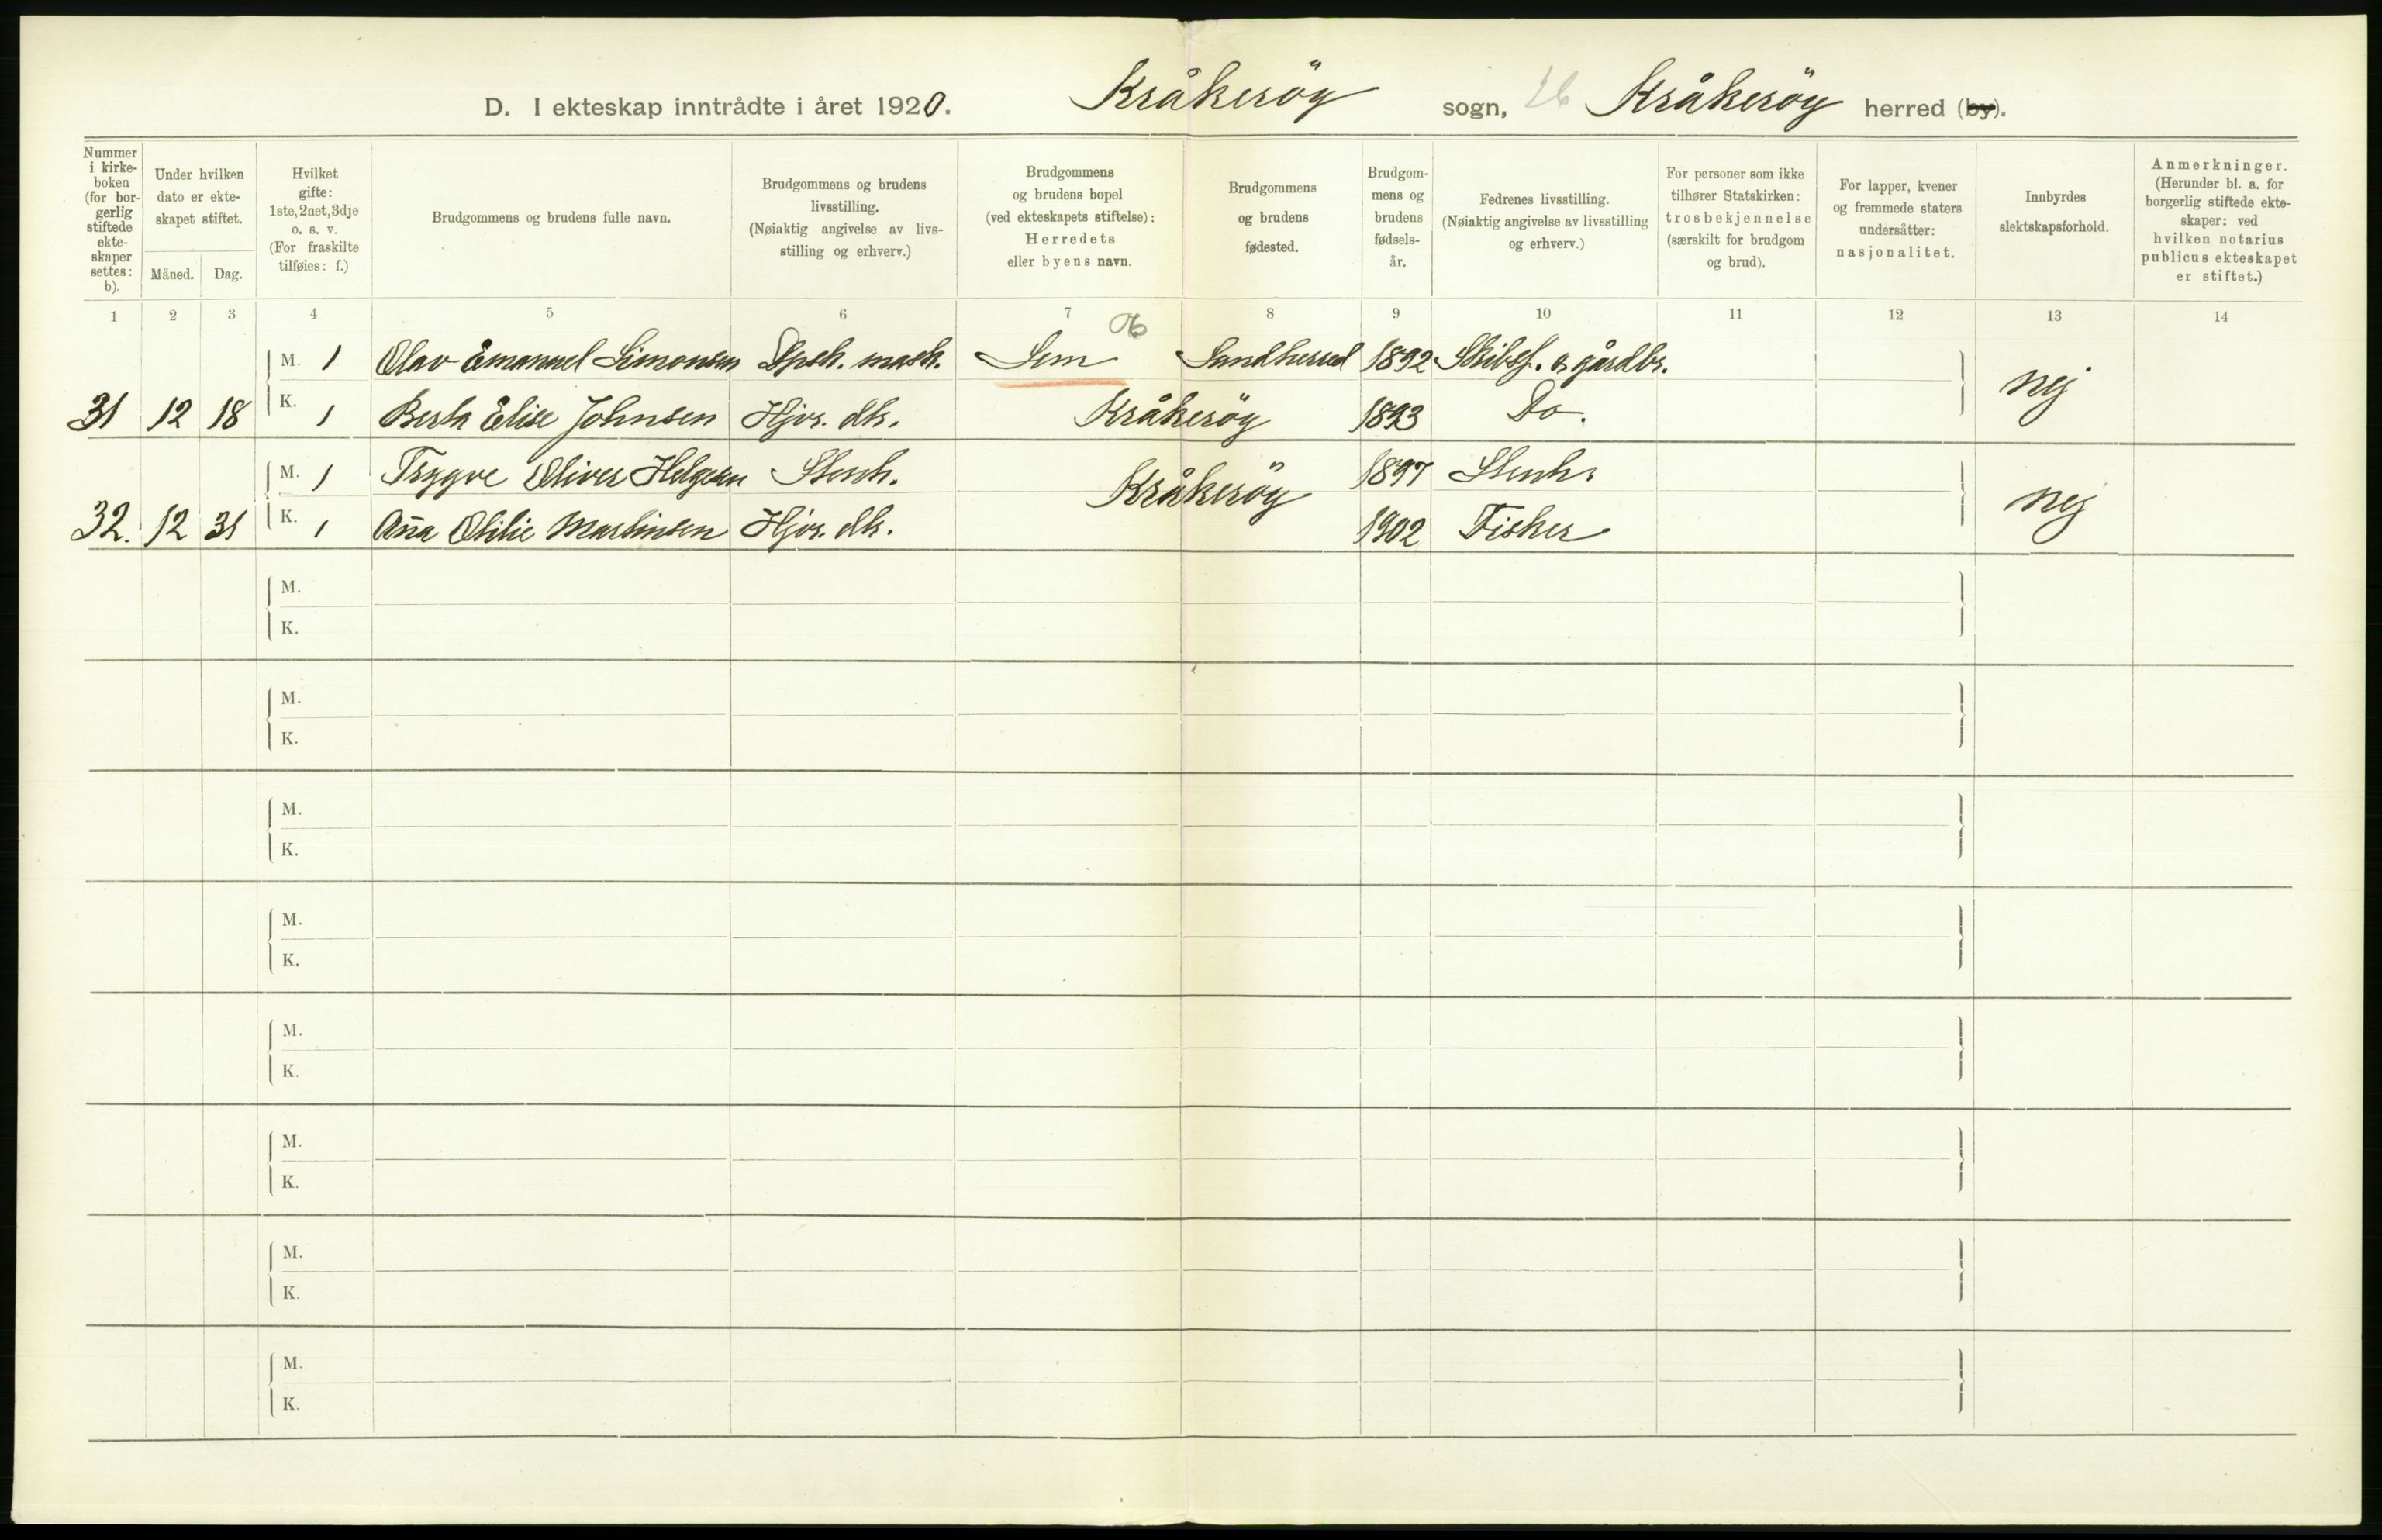 D. I ekteskap inntrådte i året 1920. Kråkeröy sogn, Kråkeröy herred (by).
Nummer i kirke-boken (for bor-gerlig stiftede ekte-skaper settes: b).
Under hvilken dato er ekte-skapet stiftet.
Måned. Dag.
Hvilket gifte: 1ste, 2net, 3dje o. s. v. (For fraskilte tilføies: f.)
Brudgommens og brudens fulle navn.
Brudgommens og brudens livsstilling. (Nøiaktig angivelse av livs-stilling og erhverv.)
Brudgommens og brudens bopel (ved ekteskapets stiftelse): Herredets eller byens navn.
Brudgommens og brudens fødested.
Brudgom-mens og brudens fødsels-år.
Fedrenes livsstilling. (Nøiaktig angivelse av livsstilling og erhverv.)
For personer som ikke tilhører Statskirken: trosbekjennelse (særskilt for brudgom og brud).
For lapper, kvener og fremmede staters undersåtter: nasjonalitet.
Innbyrdes slektskapsforhold.
Anmerkninger. (Herunder bl. a. for borgerlig stiftede ekte-skaper: ved hvilken notarius publicus ekteskapet er stiftet.)
1 2 3 4 5 6 7 8 9 10 11 12 13 14
M. 1 Olav Emanuel Simonsen Dpsk. mask. Sem Sandherred 1892 Skibsf. & gårdbr.
31 12 18 K. 1 Berta Elise Johnsen Hjvr. dtr. Kråkeröy 1893 Do. Nej
M. 1 Trygve Oliver Helgesen Stenh. Kråkeröy 1897 Stenh.
32. 12 31 K. 1 Ana Otilie Martinsen Hjvr. dtr. 1902 Fisker Nej
M.
K.
M.
K.
M.
K.
M.
K.
M.
K.
M.
K.
M.
K.
M.
K.